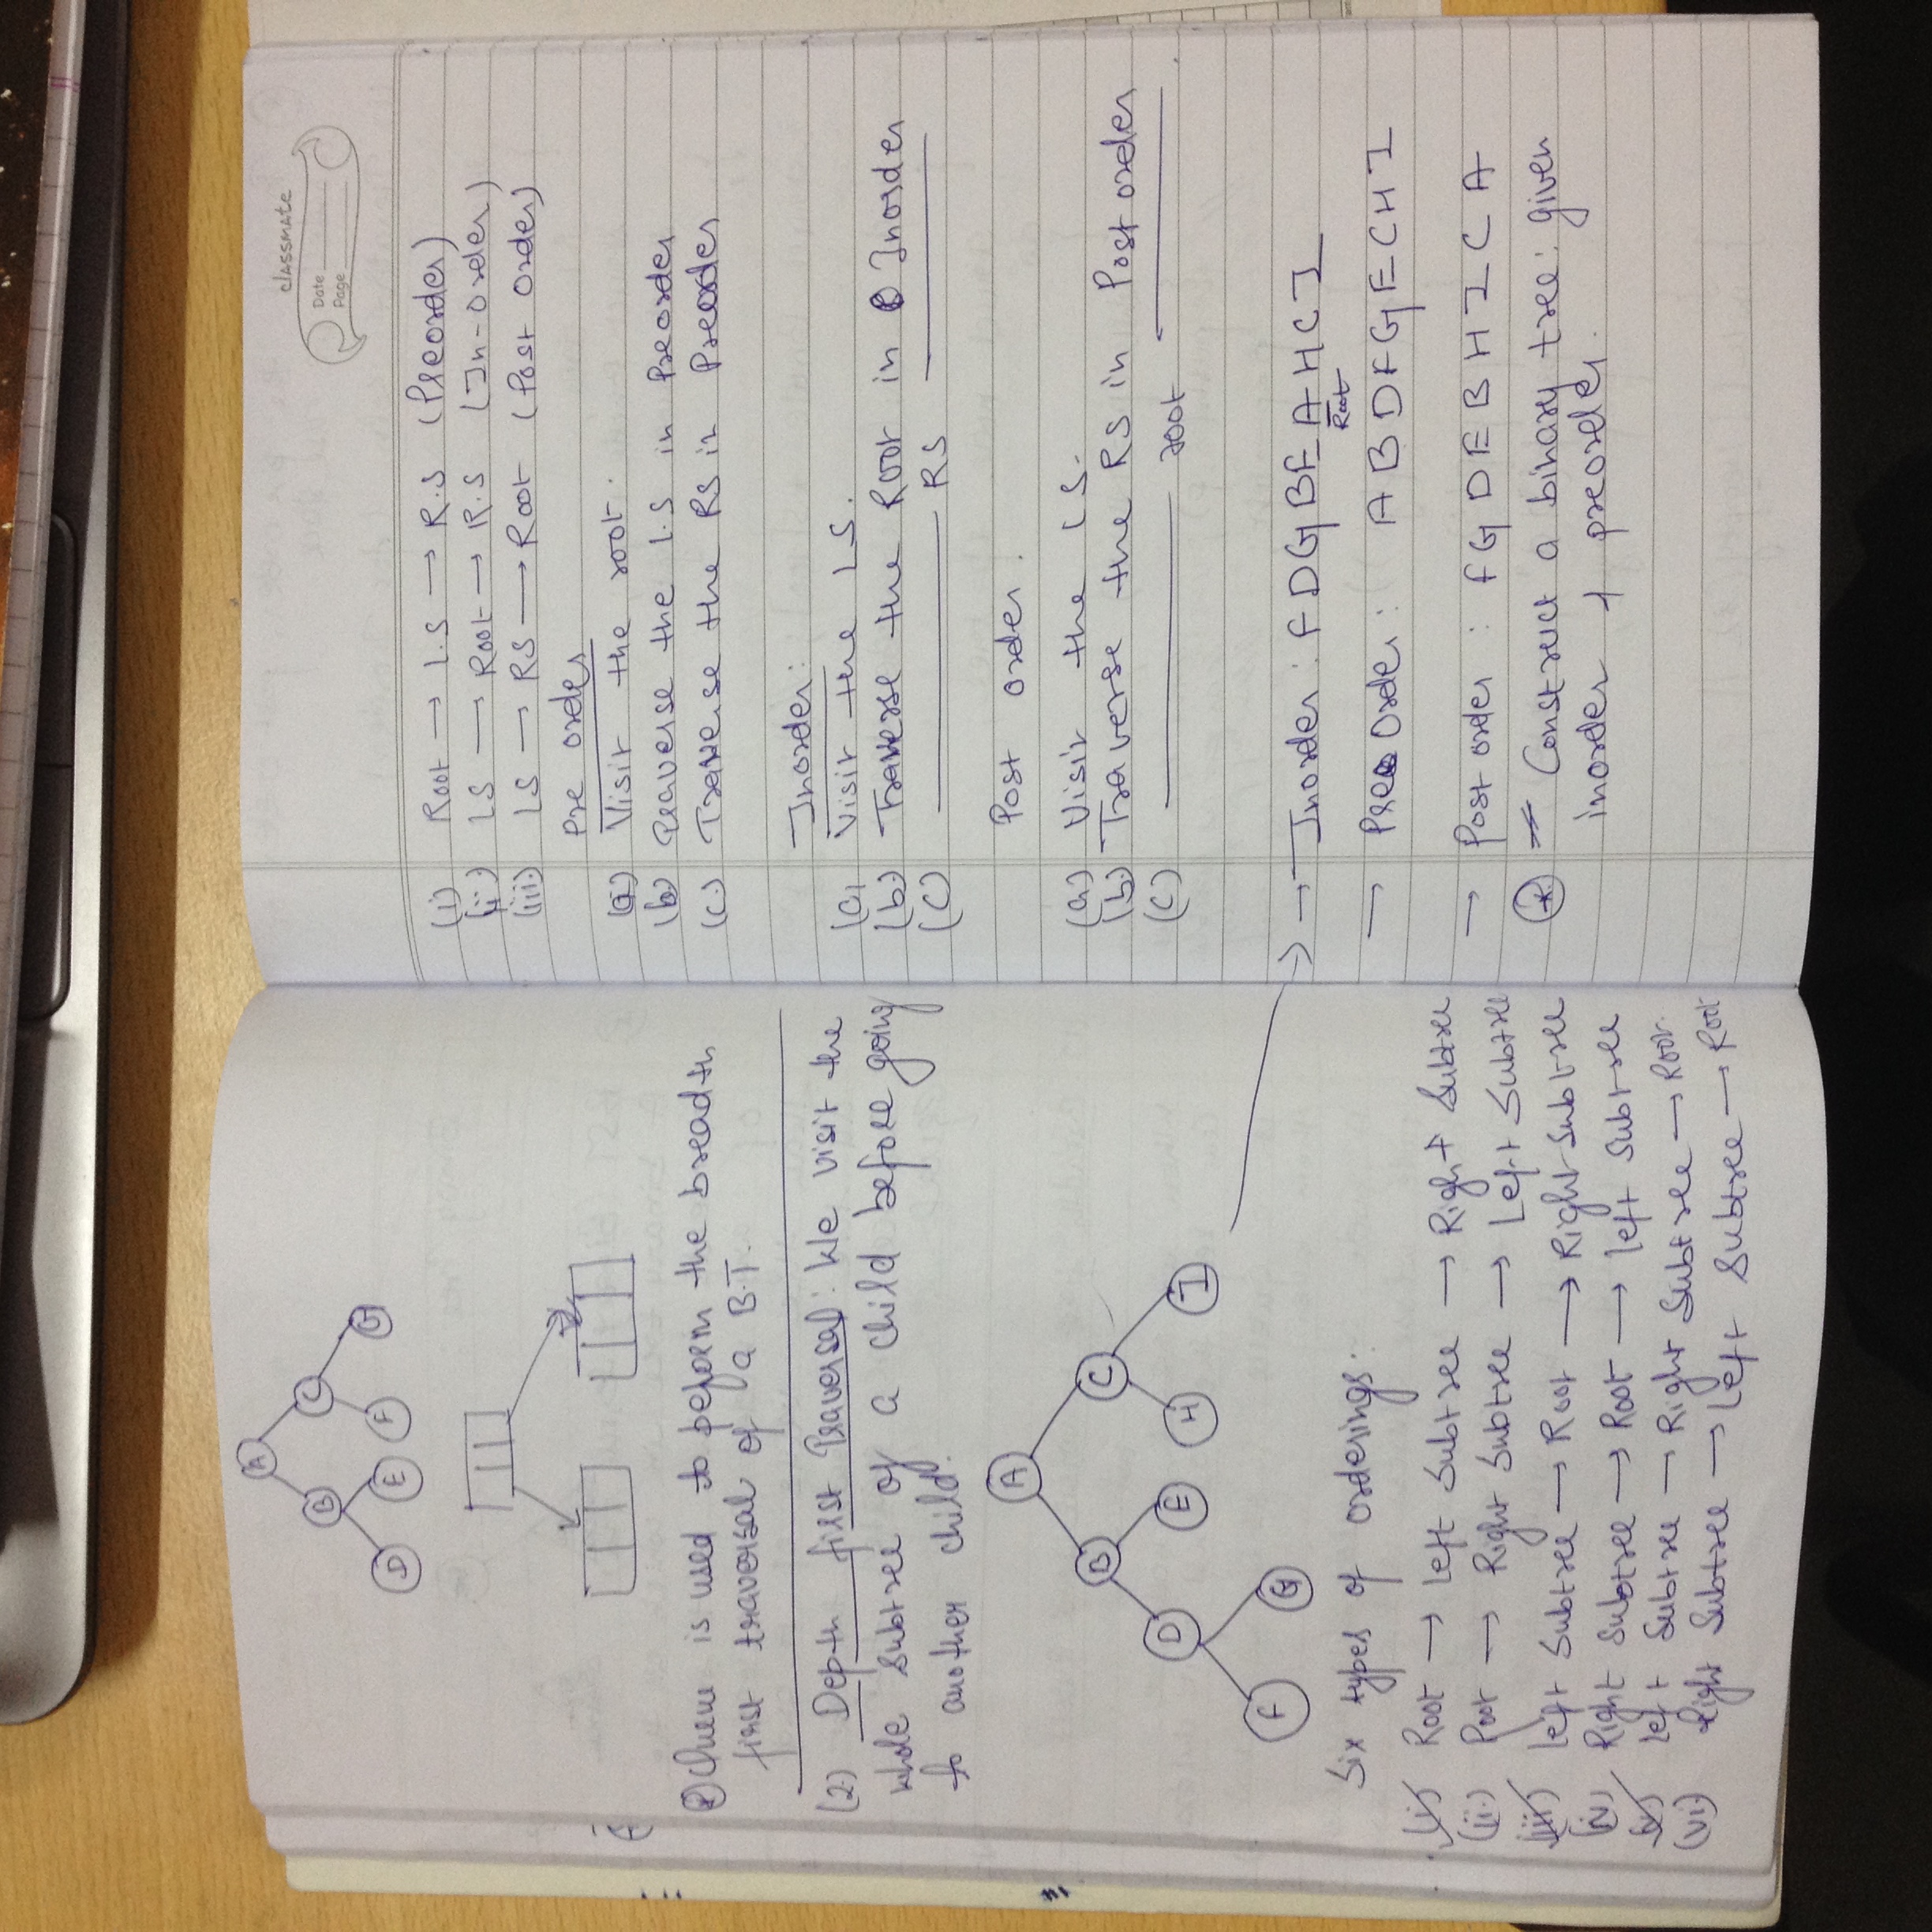 A
B
C
D
E
F
G
Queue is used to perform the breadth
first traversal of a B.T.
(2) Depth first Traversal: We visit the
whole subtree of a child before going
to another child.
A
B
C
D
E
H
I
F
G
Six types of orderings:
(i) Root → left Subtree → Right Subtree
(ii) Root → Right Subtree → Left Subtree
(iii) left Subtree → Root → Right Subtree
(iv) Right Subtree → Root → left Subtree
(v) left Subtree → Right Subtree → Root.
(vi) Right Subtree → Left Subtree → Root
classmate
Date
Page
(i) Root → L.S → R.S (Preorder)
(ii) LS → Root → R.S (In-order)
(iii) LS → RS → Root (Post order)
Pre order
(a) Visit the root.
(b) Traverse the L.S in Preorder
(c) Traverse the RS in Preorder
Inorder:
(a) Visit the LS.
(b) Traverse the Root in Inorder
(c) RS
Post order.
(a) Visit the LS.
(b) Traverse the RS in Post order
(c) root
→ Inorder: FDGBEAHCI
Root
→ Pre Order: ABDFGECHI
→ Post order: FGDEBHICA
* Construct a binary tree: given
inorder + preorder.